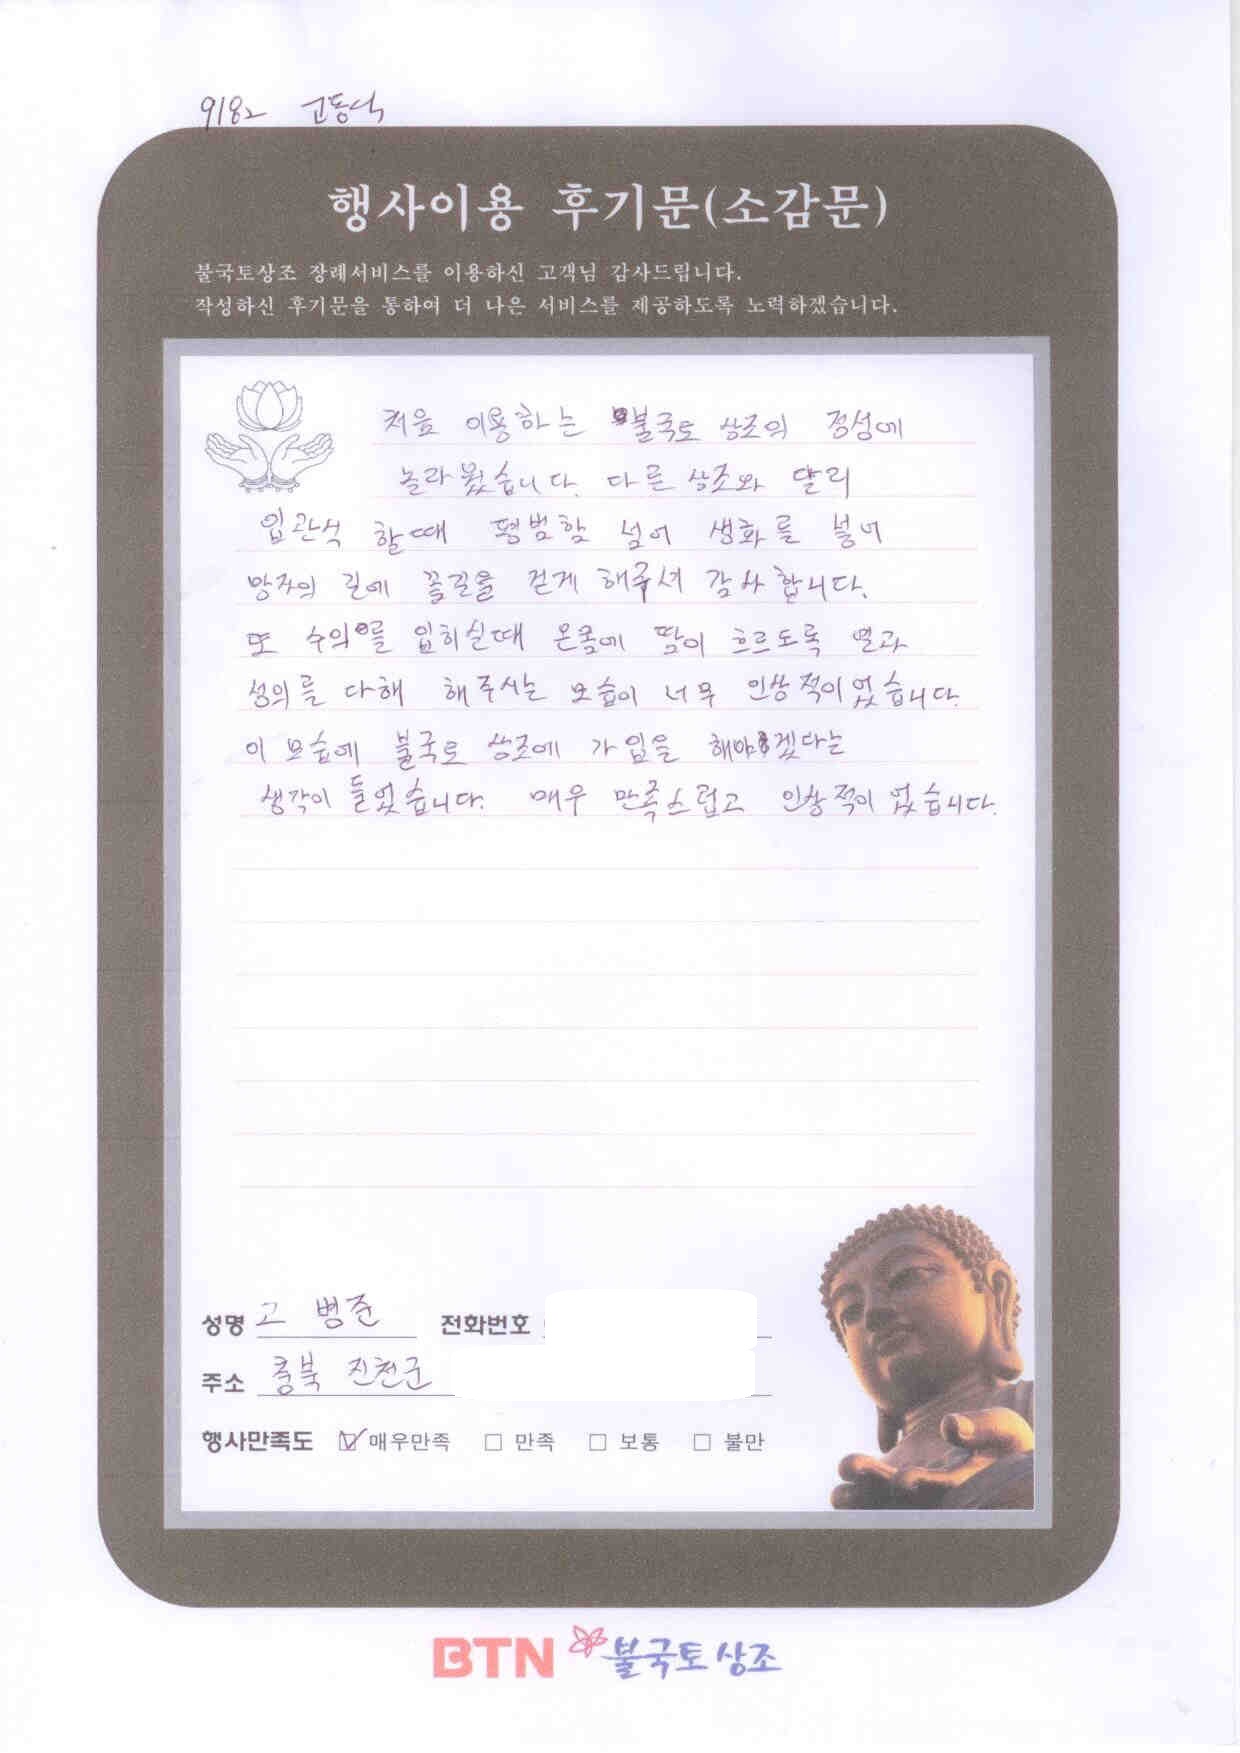 9182 고동식
행사이용 후기문(소감문)
불국토상조 장례서비스를 이용하신 고객님 감사드립니다.
작성하신 후기문을 통하여 더 나은 서비스를 제공하도록 노력하겠습니다.
처음 이용하는 불국토 상조의 정성에
놀라웠습니다. 다른 상조와 달리
입관식 할때 평범함 넘어 생화를 놓너
망자의 길에 꽃길을 걷게 해주셔 감사합니다.
또 수의를 입히실때 온몸에 땀이 흐르도록 열과
성의를 다해 해주시는 모습이 너무 인상적이었습니다.
이 모습에 불국토 상조에 가입을 해야겠다는
생각이 들었습니다. 매우 만족스럽고 인상적이었습니다.
성명 고 병준 전화번호
주소 충북 진천군
행사만족도 ☑ 매우만족 □ 만족 □ 보통 □ 불만
BTN 불국토상조